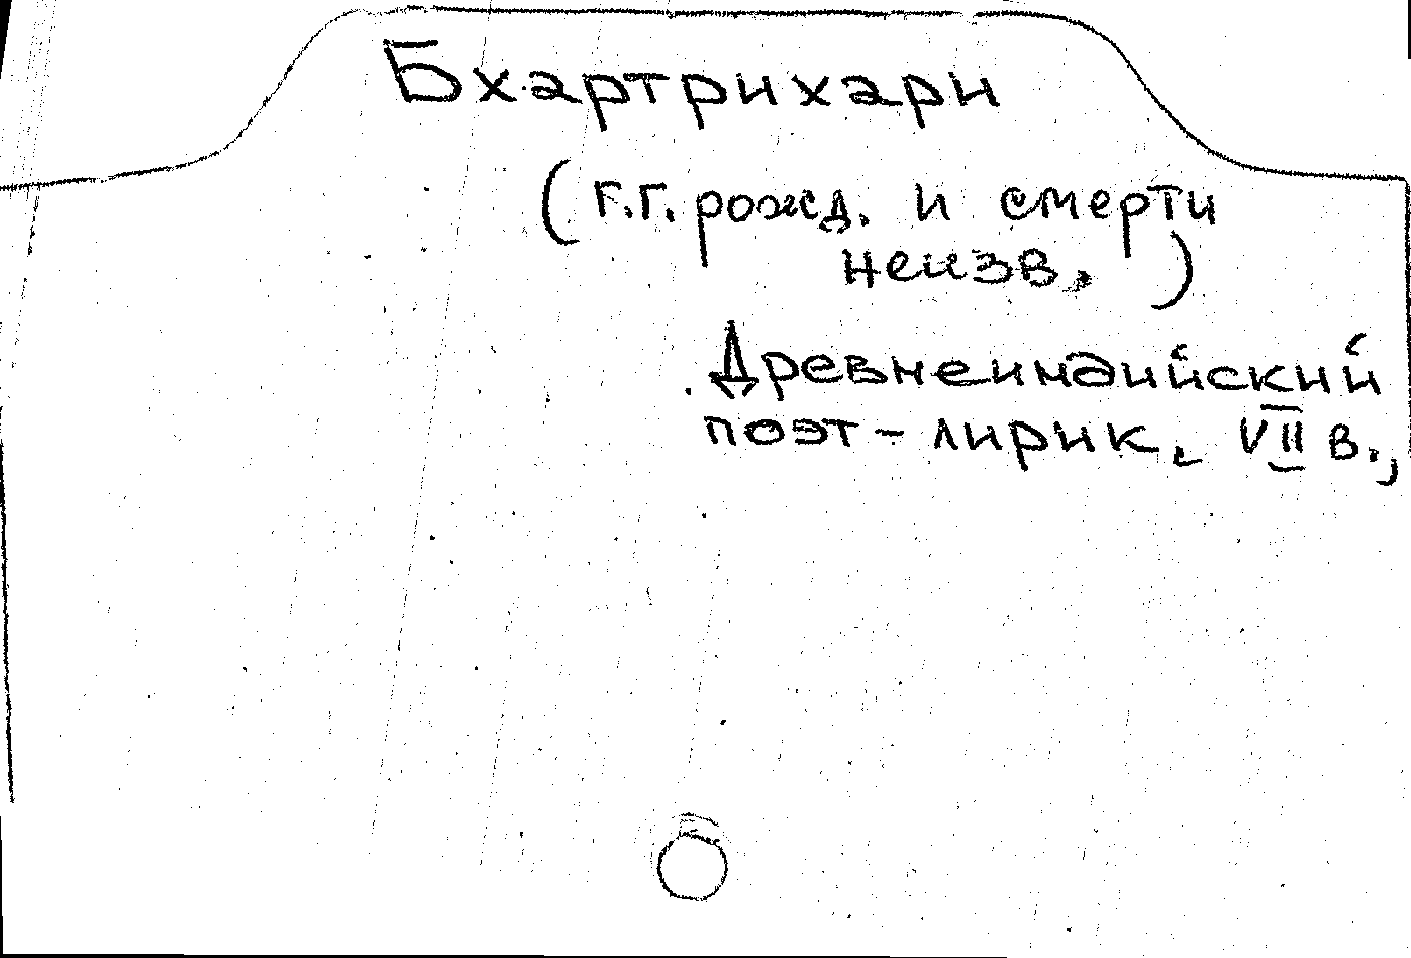 Бхартрихари
(г.г. рожд. и смерти
неизв.)
Древнеиндийский
поэт - лирик, VII в.,